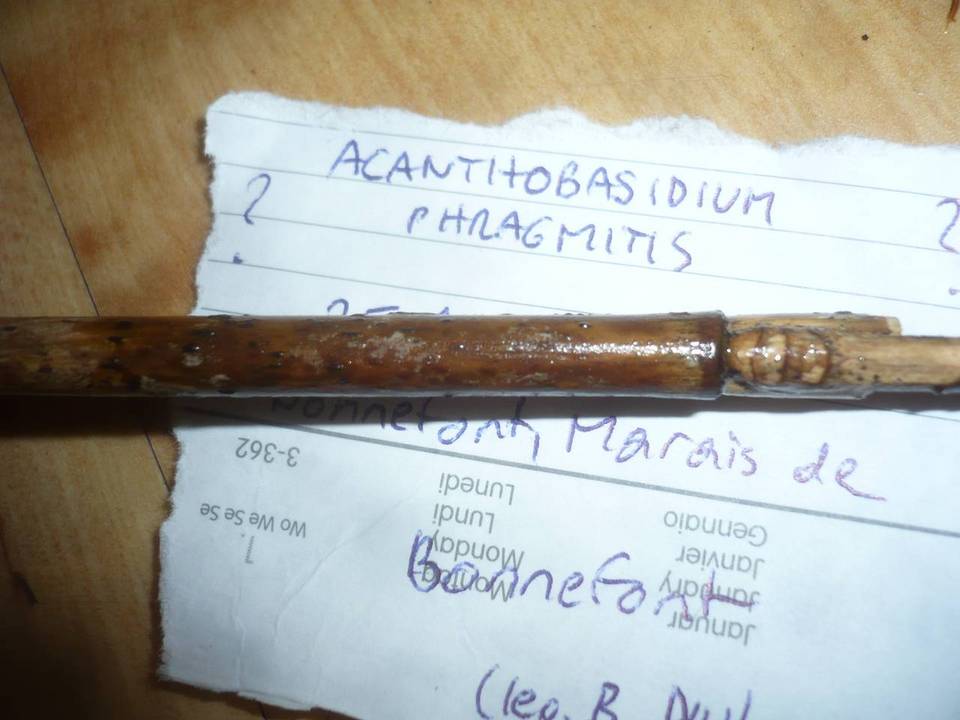 ACANTHOBASIDIUM
? PHRAGMITIS ?
Bonnefont, Marais de
Bonnefont
(leg. B.
3-362
Wo We Se Se
7
Lunedi
Lundi
Monday
Montag
Gennaio
Janvier
January
Januar